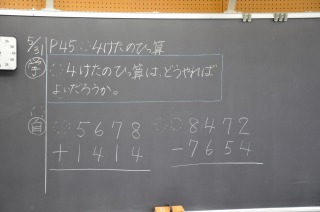 5/31 P45 4けたのひっ算
学 4けたのひっ算は、どうやれば
よいだろうか。
自 5678 8472
+1414 -7654